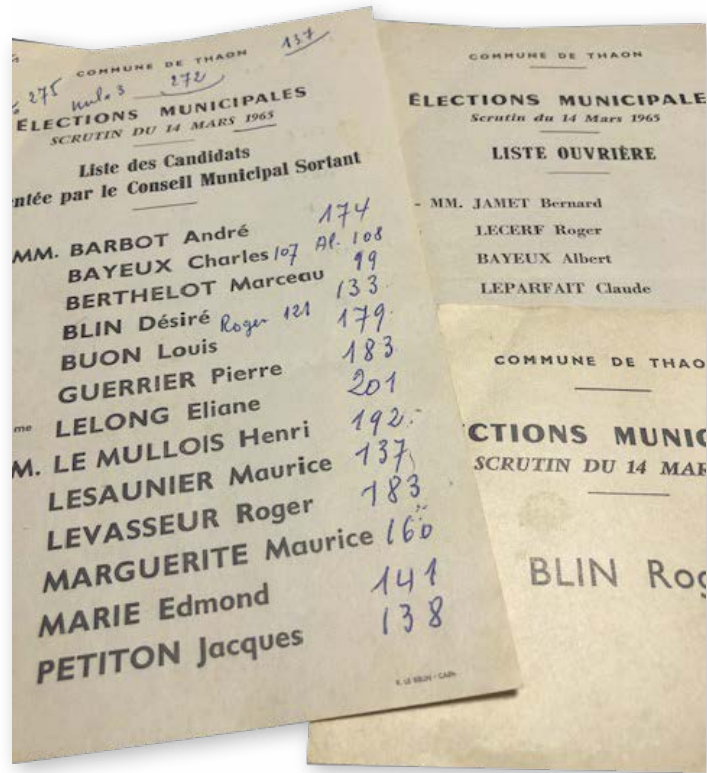 137
COMMUNE DE THAON
275 nuls 3 272
ÉLECTIONS MUNICIPALES
SCRUTIN DU 14 MARS 1965
Liste des Candidats
ntée par le Conseil Municipal Sortant
MM. BARBOT André 174
BAYEUX Charles 107 Al. 108
BERTHELOT Marceau 99
BLIN Désiré Roger 121 133
BUON Louis 179
GUERRIER Pierre 183
me LELONG Eliane 201
M. LE MULLOIS Henri 192
LESAUNIER Maurice 137
LEVASSEUR Roger 183
MARGUERITE Maurice 160
MARIE Edmond 141
PETITON Jacques 138
COMMUNE DE THAON
ÉLECTIONS MUNICIPALE
Scrutin du 14 Mars 1965
LISTE OUVRIÈRE
- MM. JAMET Bernard
LECERF Roger
BAYEUX Albert
LEPARFAIT Claude
COMMUNE DE THAO
CTIONS MUNIC
SCRUTIN DU 14 MAR
BLIN Rog